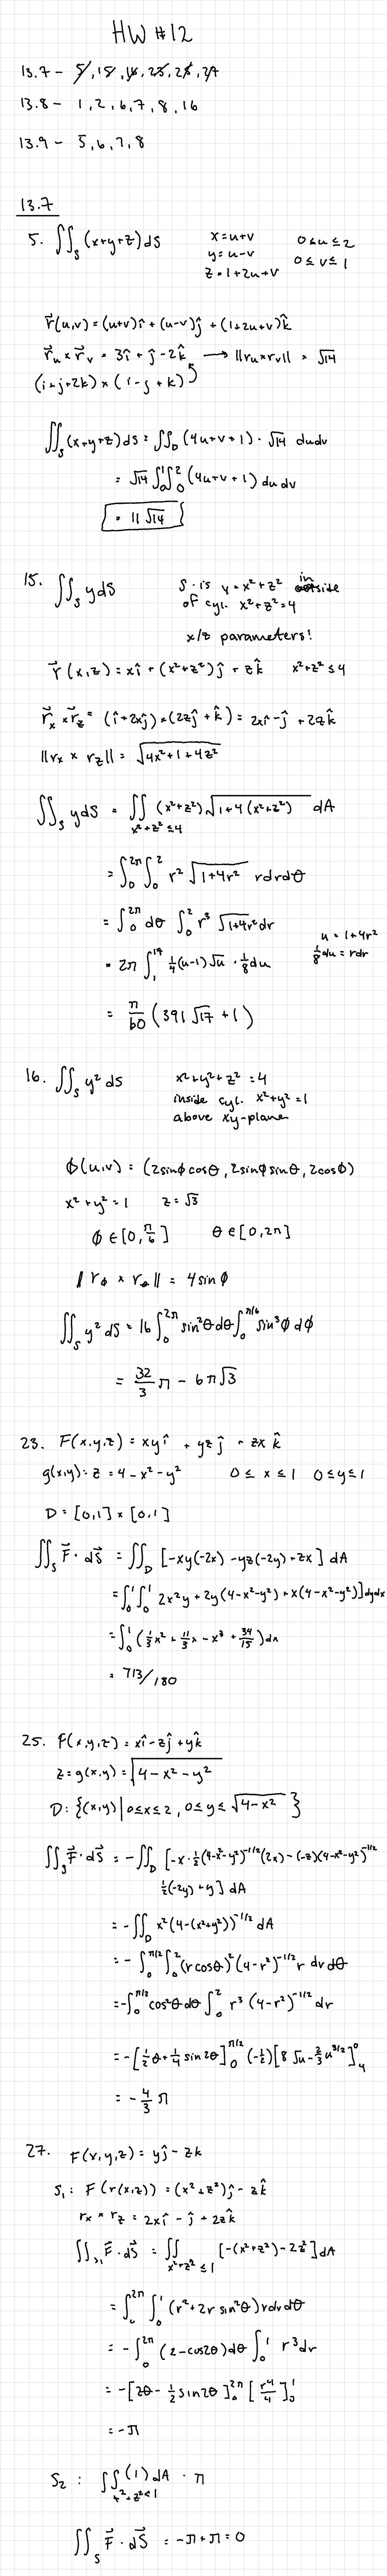 HW #12
13.7 - 5, 15, 16, 23, 25, 27
13.8 - 1, 2, 6, 7, 8, 16
13.9 - 5, 6, 7, 8
13.7
5. ∬_S (x+y+z) dS   x = u+v   0 ≤ u ≤ 2
y = u-v   0 ≤ v ≤ 1
z = 1+2u+v
r⃗(u,v) = (u+v)î + (u-v)ĵ + (1+2u+v)k̂
r⃗_u × r⃗_v = 3î + ĵ - 2k̂ → ||r_u × r_v|| = √14
(i+j+2k) × (i-j+k)
∬_S (x+y+z) dS = ∬_D (4u+v+1) · √14 du dv
= √14 ∫_0^1 ∫_0^2 (4u+v+1) du dv
= 11√14
15. ∬_S y dS   S is y = x² + z² inside
of cyl. x² + z² = 4
x/z parameters!
r⃗(x,z) = xî + (x²+z²)ĵ + zk̂   x²+z² ≤ 4
r⃗_x × r⃗_z = (î+2xĵ) × (2zĵ+k̂) = 2xî - ĵ + 2zk̂
||r_x × r_z|| = √(4x²+1+4z²)
∬_S y dS = ∬_{x²+z²≤4} (x²+z²) √(1+4(x²+z²)) dA
= ∫_0^{2π} ∫_0^2 r² √(1+4r²) r dr dθ
= ∫_0^{2π} dθ ∫_0^2 r³ √(1+4r²) dr   u = 1+4r²
= 2π ∫_1^{17} ¼(u-1)√u · ⅛ du   ⅛ du = r dr
= π/60 (391√17 + 1)
16. ∬_S y² dS   x²+y²+z² = 4
inside cyl. x²+y² = 1
above xy-plane
ϕ(u,v) = (2sinϕ cosθ, 2sinϕ sinθ, 2cosϕ)
x² + y² = 1   z = √3
ϕ ∈ [0, π/6]   θ ∈ [0, 2π]
||r_ϕ × r_θ|| = 4 sin ϕ
∬_S y² dS = 16 ∫_0^{2π} sin²θ dθ ∫_0^{π/6} sin³ϕ dϕ
= 32/3 π - 6π√3
23. F(x,y,z) = xy î + yz ĵ + zx k̂
g(x,y) = z = 4 - x² - y²   0 ≤ x ≤ 1   0 ≤ y ≤ 1
D = [0,1] × [0,1]
∬_S F⃗ · dS⃗ = ∬_D [-xy(-2x) - yz(-2y) + zx] dA
= ∫_0^1 ∫_0^1 2x²y + 2y(4-x²-y²) + x(4-x²-y²)] dy dx
= ∫_0^1 (⅓x² + 11/3 x - x³ + 34/15) dx
= 713/180
25. F(x,y,z) = xî - zĵ + yk̂
z = g(x,y) = √(4-x²-y²)
D: {(x,y) | 0≤x≤2, 0≤y≤√(4-x²)}
∬_S F⃗ · dS⃗ = -∬_D [-x · ½(4-x²-y²)^{-1/2}(2x) - (-z)(4-x²-y²)^{-1/2}
½(-2y) + y] dA
= -∬_D x²(4-(x²+y²))^{-1/2} dA
= -∫_0^{π/2} ∫_0^2 (r cosθ)² (4-r²)^{-1/2} r dr dθ
= -∫_0^{π/2} cos²θ dθ ∫_0^2 r³ (4-r²)^{-1/2} dr
= -[½θ + ¼ sin 2θ]_0^{π/2} (-½) [8√u - ⅔u^{3/2}]_4^0
= -4/3 π
27. F(x,y,z) = yĵ - zk
S₁: F(r(x,z)) = (x²+z²)ĵ - zk̂
r_x × r_z = 2xî - ĵ + 2zk̂
∬_{S₁} F⃗ · dS⃗ = ∬_{x²+z²≤1} [-(x²+z²) - 2z²] dA
= ∫_0^{2π} ∫_0^1 (r² + 2r sin²θ) r dr dθ
= -∫_0^{2π} (2 - cos2θ) dθ ∫_0^1 r³ dr
= -[2θ - ½ sin 2θ]_0^{2π} [r⁴/4]_0^1
= -π
S₂: ∬_{x²+z²<1} (1) dA = π
∬_S F⃗ · dS⃗ = -π + π = 0